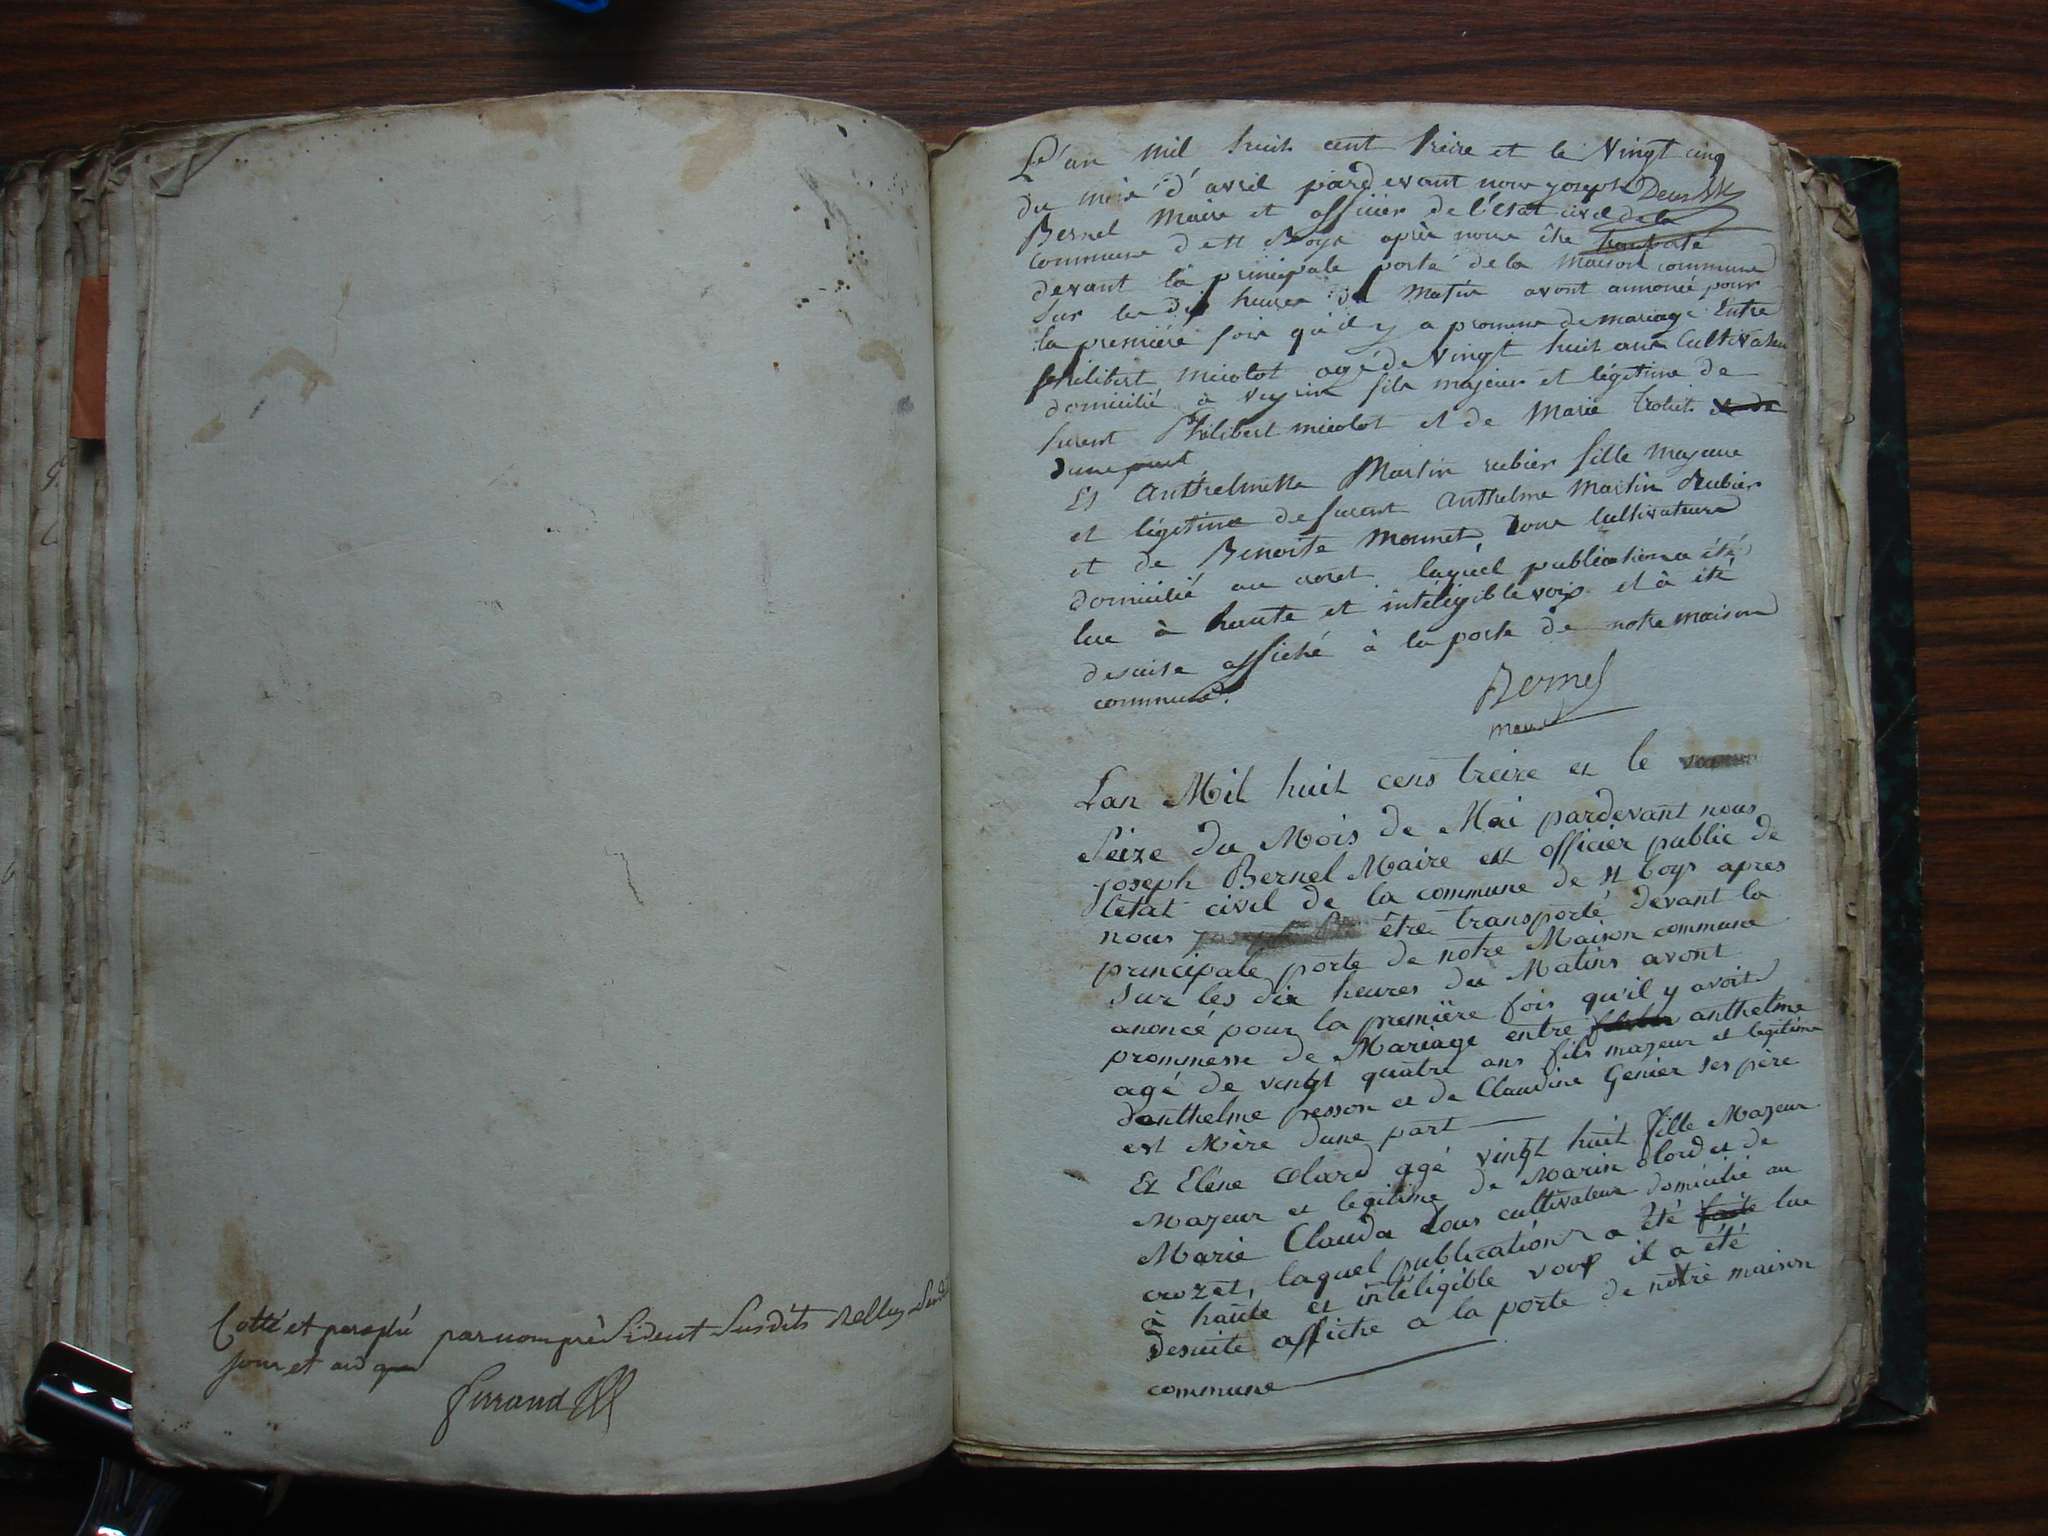 Cotté et paraphé par nous président susdits Belley
jour et an que
Ferrand
L'an mil huit cent treize et le Vingt cinq
du mois d'avril pardevant nous joseph
Bernel Maire et officier de l'état civil de la
commune de St Boys après nous être transporté
devant la principale porte de la maison commune
sur les dix heures du matin avont annoncé pour
la première fois qu'il y a promesse de mariage Entre
philibert micolot agé de Vingt huit ans Cultivateur
domicilié à veyrin fils majeur et légitime de
furent Philibert micolot et de Marie trolit et de
d'une part
Et Anthelmette Martin rubier fille majeure
et légitime de furent Anthelme Martin Rubier
et de Benoite Monnet tous Cultivateurs
domicilié au crozet laquel publication a été
lue à haute et inteligible voix et à été
desuite affiché à la porte de notre maison
commune.
Bernel
maire
Lan Mil huit cens treize et le
Seize du Mois de Mai pardevant nous
joseph Bernel Maire est officier public de
letat civil de la commune de st boys apres
nous être transporté devant la
principale porte de notre Maison commune
sur les dix heures du Matins avont
anoncé pour la première fois qu'il y avoit
prommesse de Mariage entre anthelme
agé de vingt quatre ans fils majeur et legitime
danthelme presson et de Claudine Genier ses père
est Mère dune part
Et Eléne Clard agé vingt huit fille Majeur
Majeur et legitime de Marin Clord et de
Marie Clauda tous cultivateur domicilié au
crozet, laquel publication a été faite lue
à haute et inteligible voix il a été
desuite affiche a la porte de notre maison
commune